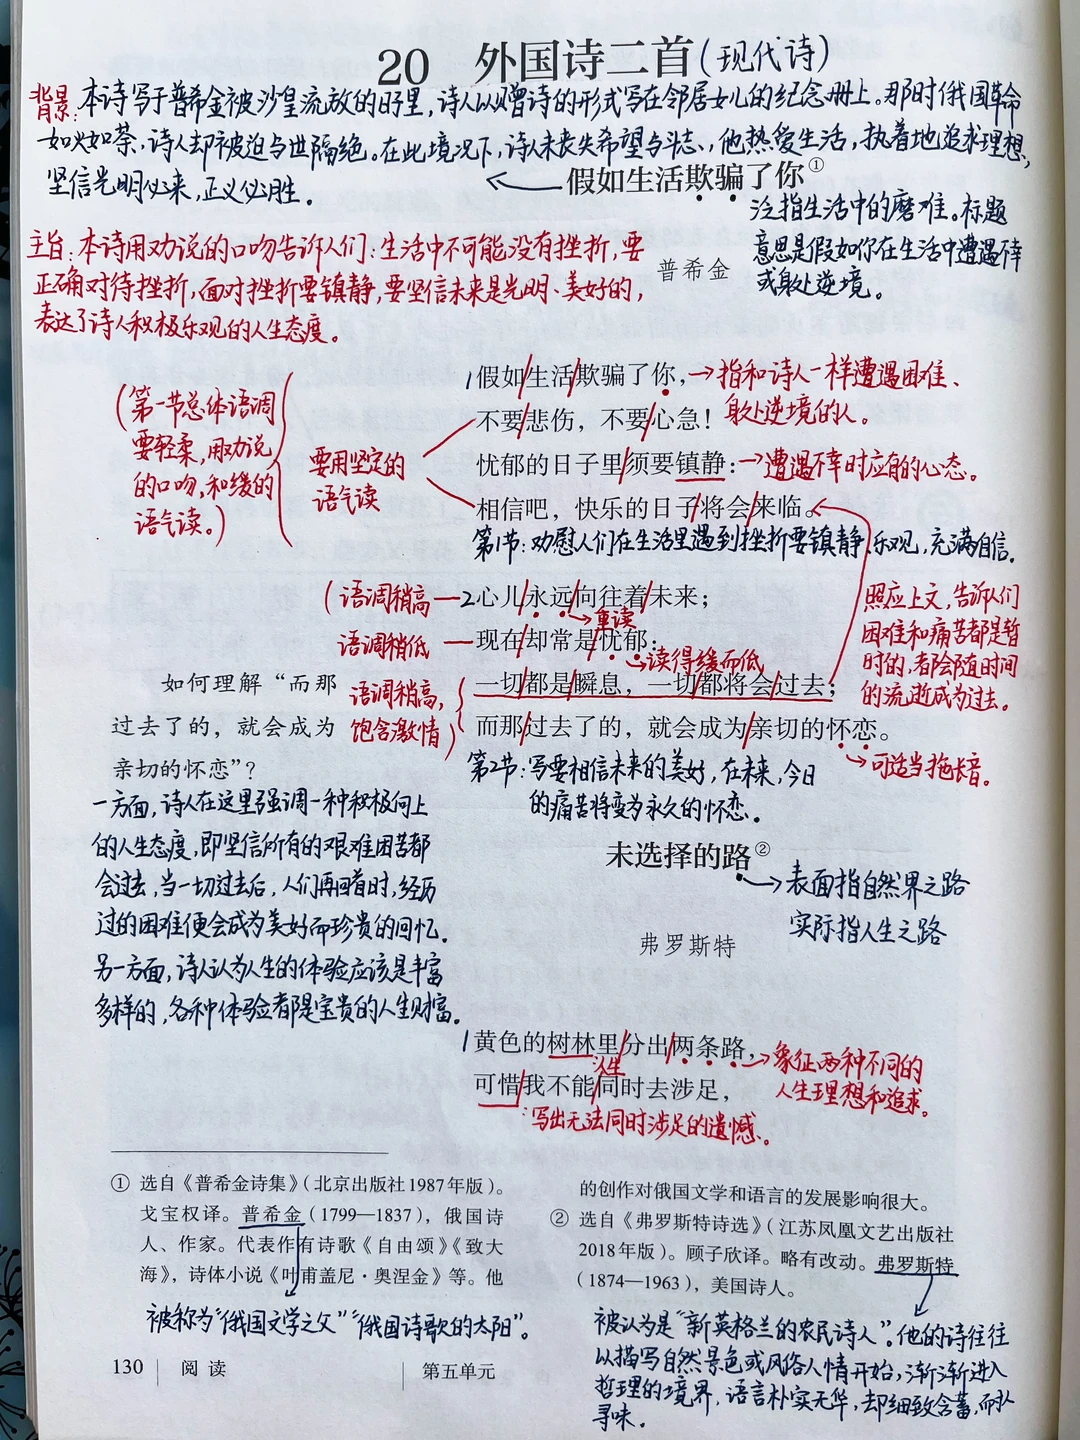 20 外国诗二首(现代诗)
背景:本诗写于普希金被沙皇流放的日子里,诗人以赠诗的形式写在邻居女儿的纪念册上。那时俄国革命
如火如荼,诗人却被迫与世隔绝。在此境况下,诗人未丧失希望与斗志,他热爱生活,执着地追求理想,
坚信光明必来,正义必胜。
假如生活欺骗了你①
泛指生活中的磨难。标题
意思是假如你在生活中遭遇不幸
或身处逆境。
主旨:本诗用劝说的口吻告诉人们:生活中不可能没有挫折,要
正确对待挫折,面对挫折要镇静,要坚信未来是光明、美好的,
表达了诗人积极乐观的人生态度。
普希金
(第一节总体语调
要轻柔,用劝说
的口吻,和缓的
语气读。)
要用坚定的
语气读
1假如/生活/欺骗了你,→指和诗人一样遭遇困难、
身处逆境的人。
不要/悲伤,不要/心急!
忧郁的日子里/须要镇静:→遭遇不幸时应有的心态。
相信吧,快乐的日子/将会/来临。
第1节:劝慰人们在生活里遇到挫折要镇静、乐观,充满自信。
(语调稍高—2心儿/永远/向往着/未来;
→重读
语调稍低—现在/却常是/忧郁:
→读得缓而低
语调稍高,
饱含激情)
一切/都是/瞬息,一切/都将会/过去;
而那/过去了的,就会成为/亲切的怀恋。
→可适当拖长音。
照应上文,告诉人们
困难和痛苦都是暂
时的,都会随时间
的流逝成为过去。
第2节:写要相信未来的美好,在未来,今日
的痛苦将变为永久的怀恋。
如何理解“而那
过去了的,就会成为
亲切的怀恋”?
一方面,诗人在这里强调一种积极向上
的人生态度,即坚信所有的艰难困苦都
会过去,当一切过去后,人们再回首时,经历
过的困难便会成为美好而珍贵的回忆。
另一方面,诗人认为人生的体验应该是丰富
多样的,各种体验都是宝贵的人生财富。
未选择的路②
→表面指自然界之路
实际指人生之路
弗罗斯特
1黄色的树林里/分出/两条路,→象征两种不同的
人生理想和追求。
人生
可惜/我不能/同时去涉足,
写出无法同时涉足的遗憾。
① 选自《普希金诗集》(北京出版社1987年版)。
戈宝权译。普希金(1799—1837),俄国诗
人、作家。代表作有诗歌《自由颂》《致大
海》,诗体小说《叶甫盖尼·奥涅金》等。他
的创作对俄国文学和语言的发展影响很大。
② 选自《弗罗斯特诗选》(江苏凤凰文艺出版社
2018年版)。顾子欣译。略有改动。弗罗斯特
(1874—1963),美国诗人。
被称为“俄国文学之父”“俄国诗歌的太阳”。
被认为是“新英格兰的农民诗人”。他的诗往往
以描写自然景色或风俗人情开始,渐渐进入
哲理的境界,语言朴实无华,却细致含蓄,耐人
寻味。
130 阅读 第五单元